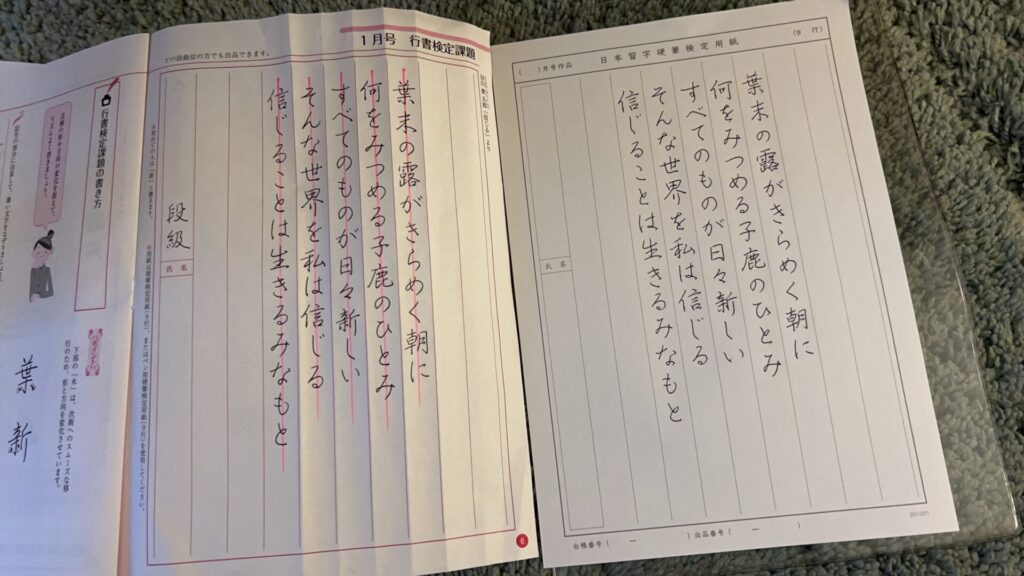 1月号 行書検定課題
どの段級位の方でも出品できます。
葉末の露がきらめく朝に
何をみつめる子鹿のひとみ
すべてのものが日々新しい
そんな世界を私は信じる
信じることは生きるみなもと
段級
氏名
6
行書検定課題の書き方
ポイント
下部の「木」は、次画へのスムーズな移
行のため、形と方向を変化させています。
葉
新
日本習字硬筆検定用紙
(9 行)
( )月号作品
葉末の露がきらめく朝に
何をみつめる子鹿のひとみ
すべてのものが日々新しい
そんな世界を私は信じる
信じることは生きるみなもと
氏名
台帳番号( ー )出品番号( ー )